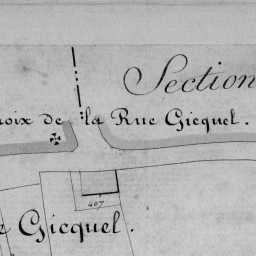 Section
de la Rue Gicquel.
407
Gicquel.